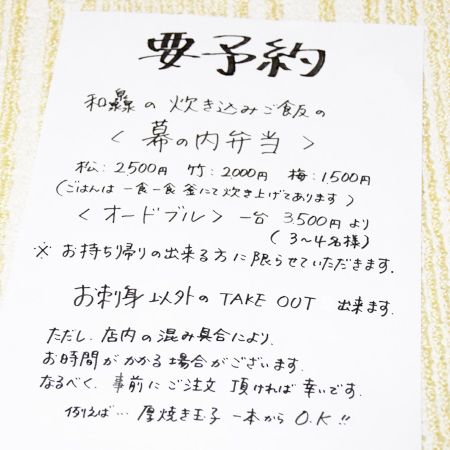 要予約
和泉の炊き込みご飯の
〈幕の内弁当〉
松:2500円 竹:2000円 梅:1,500円
(ごはんは一食一食釜にて炊き上げてあります)
〈オードブル〉一台 3,500円より
(3〜4名様)
※お持ち帰りの出来る方に限らせていただきます.
お刺身以外のTAKE OUT 出来ます.
ただし、店内の混み具合により、
お時間がかかる場合がございます.
なるべく、事前にご注文頂ければ幸いです.
例えば…厚焼き玉子 一本からO.K!!